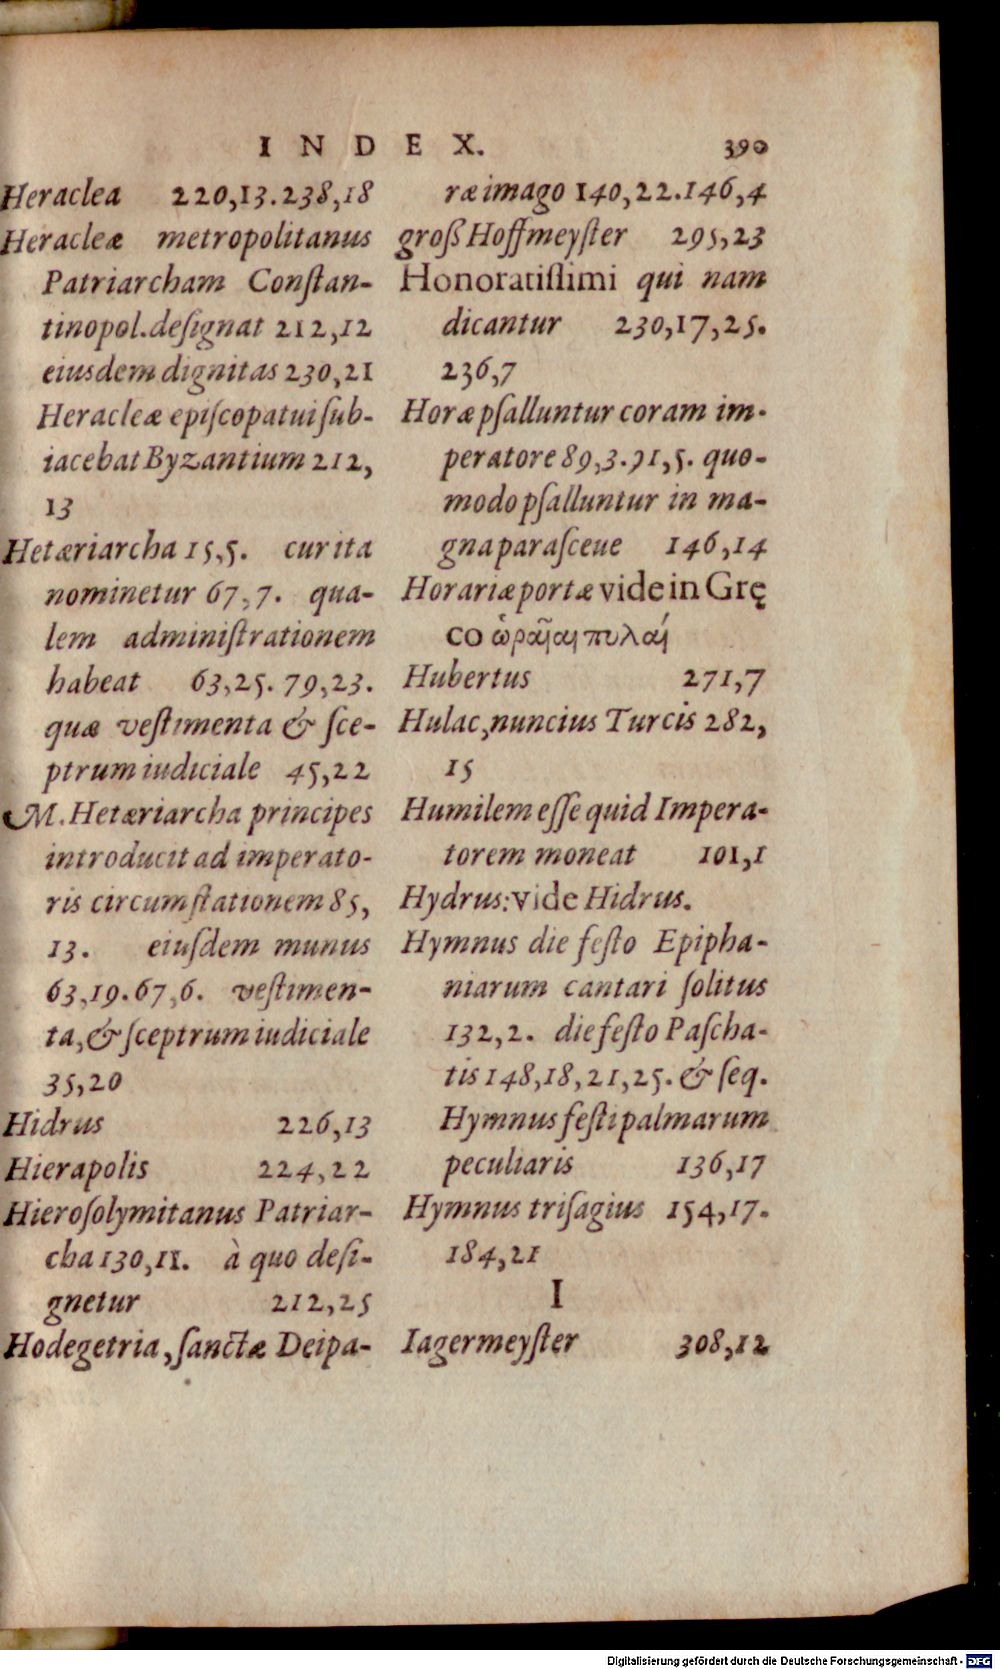 INDEX. 390
Heraclea 220,13.238,18
Heracleæ metropolitanus
Patriarcham Conſtan-
tinopol.deſignat 212,12
eiusdem dignitas 230,21
Heracleæ epiſcopatui ſub-
iacebat Byzantium 212,
13
Hetæriarcha 15,5. cur ita
nominetur 67,7. qua-
lem adminiſtrationem
habeat 63,25. 79,23.
quæ veſtimenta & ſce-
ptrum iudiciale 45,22
M. Hetæriarcha principes
introducit ad imperato-
ris circumſtationem 85,
13. eiuſdem munus
63,19.67,6. veſtimen-
ta, & ſceptrum iudiciale
35,20
Hidrus 226,13
Hierapolis 224,22
Hieroſolymitanus Patriar-
cha 130,11. à quo deſi-
gnetur 212,25
Hodegetria, ſanctæ Deipa-
ræ imago 140,22.146,4
groß Hoffmeyſter 295,23
Honoratiſſimi qui nam
dicantur 230,17,25.
236,7
Horæ pſalluntur coram im-
peratore 89,3.91,5. quo-
modo pſalluntur in ma-
gna paraſceue 146,14
Horariæ portæ vide in Grę
co ὡραῖαι πυλαί
Hubertus 271,7
Hulac, nuncius Turcis 282,
15
Humilem eſſe quid Impera-
torem moneat 101,1
Hydrus: vide Hidrus.
Hymnus die feſto Epipha-
niarum cantari ſolitus
132,2. die feſto Paſcha-
tis 148,18,21,25. & ſeq.
Hymnus feſti palmarum
peculiaris 136,17
Hymnus triſagius 154,17.
184,21
I
Iagermeyſter 308,12
Digitalisierung gefördert durch die Deutsche Forschungsgemeinschaft - DFG